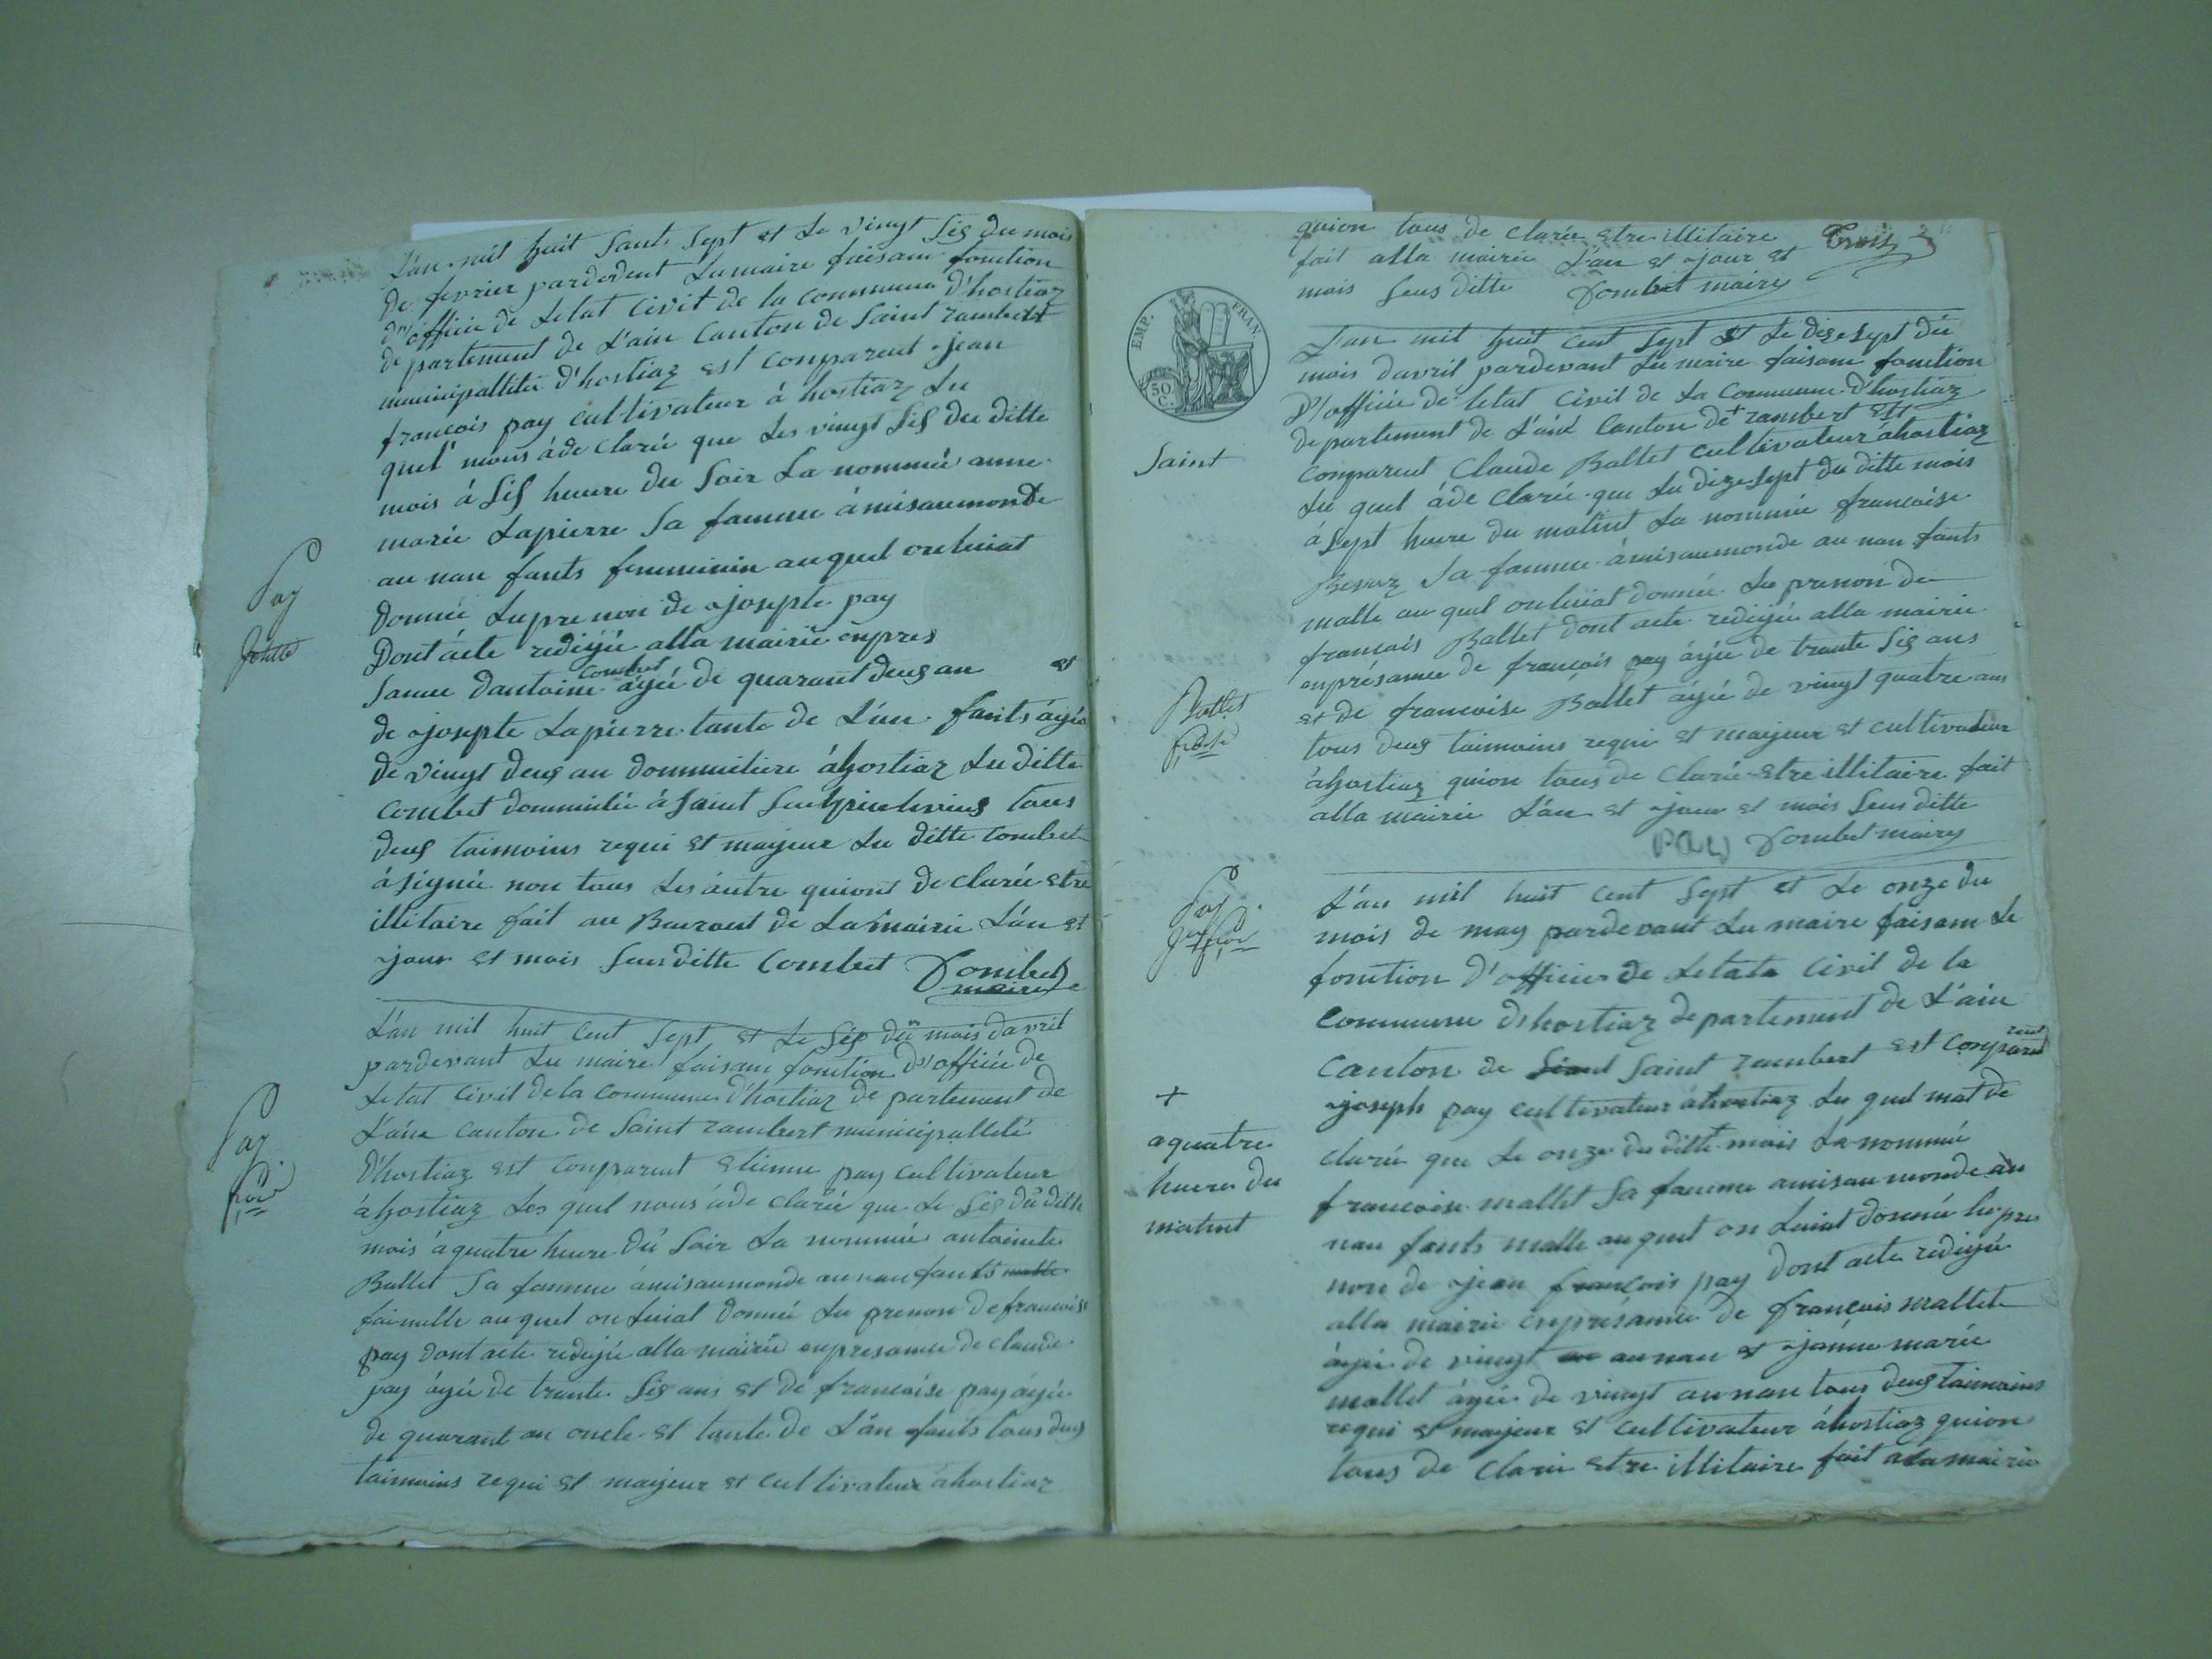 L'an mil huit Sant Sept et le vingt Sis du mois
de fevrier pardevent Lumaire faisam fonction
d'officie de Letat Civit de la Commune d'hostiaz
de partement de L'ain Canton de Saint rambert
municipallitée d'hostiaz est Comparent jean
francois pay cultivateur à hostiaz Lu
quel nous áde clarée que Les vingt Sis du ditte
mois á Sis heure du Soir La nommée anne
marie Lapierre Sa famme á mis au monde
au nan fants femminin au quel on luiat
Donnée Lupre non de josepte pay
Dont ácte redigée alla mairie enpres
Sance dantoine Combet ágée de quarant deus an et
de josepte Lapierre tante de L'an fants ágée
de vingt deus an dommicliere áhostiaz Lu ditte
Combet dommicilié á Saint tous
deus taimoins requi et majeur Lu ditte Combet
á signée non tous Les áutre quiont de clarée stre
illitaire fait au Buraut de La mairie L'án et
jour et mois Seus ditte Combet Dombet
maire
Pay
L'an mil huit Cent Sept et Le Sis du mois davril
pardevant Lu maire faisam fonction d'officie de
Letat Civit de la Commune d'hostiaz de partement de
L'áin Canton de Saint rambert municipallité
D'hostiaz est Comparent etienne pay Cultivateur
á hostiaz Les quel nous áde clarée que Le Sis du ditte
mois á quatre heure dú Soir La nommée antoinete
Ballet Sa famme ámisaumonde au nan fants
faimelle au quel on Luiat Donnée Lu prenon de francoise
pay dont acte redigée alla mairie enpresance de claude
pay ágée de trante Sis ans et de francoise pay ágée
de quarant an oncle et tante de L'án fants tous deus
taimoins requi et majeur et Cultivateur áhostiaz
Pay
quion tous de clarée stre illitaire Trois
fait alla mairie L'an et jour et
mois Seus ditte Dombet maire
EMP. FRAN.
50
C.
L'an mil huit Cent Sept et Le dise Sept du
mois davril pardevant Lu maire faisam fonction
D'officie de Letat Civil de La Commune d'hostiaz
de partement de L'ain Canton de + rambert est
Saint
Comparent Claude Ballet Cultivateur áhostiaz
Lu quel áde clarée que Lu dize Sept du ditte mois
á Sept heure du matint La nommée francoise
Sa famme ámisaumonde au nan fants
malle au quel on luiat donnée Lu prenon de
francois Ballet dont acte redigée alla mairie
enprésance de françois pay ágée de trante Sis ans
et de francoise Ballet ágée de vingt quatre ans
tous deus taimoins requi et majeur et cultivateur
áhostiaz quion tous de clarée stre illitaire fait
alla mairie L'án et jour et mois Seus ditte
PAY Dombet maire
Ballet
L'án mil huit Cent Sept et Le onze du
mois de may pardevant Lu maire faisam Le
fonction d'officier de Letata Civil de la
Commune d'hostiaz departement de L'ain
Canton de Saint rambert est Comparent
joseph pay cultivateur áhostiaz Lu quel mat de
clarée que Le onze du ditte + mois La nommée
francoise mallet Sa famme amisau monde au
nan fants malle au quel on Luiat donnée Lu pre
non de jean francois pay dont acte redigée
alla mairie enprésance de françois mallet
ágée de vingt au nan et janne marie
mallet ágée de vingt au nan tous deus taimoins
requi et majeur et Cultivateur áhostiaz quion
tous de clarée stre illitaire fait ala mairie
Pay
+
aquatre
heure du
matint